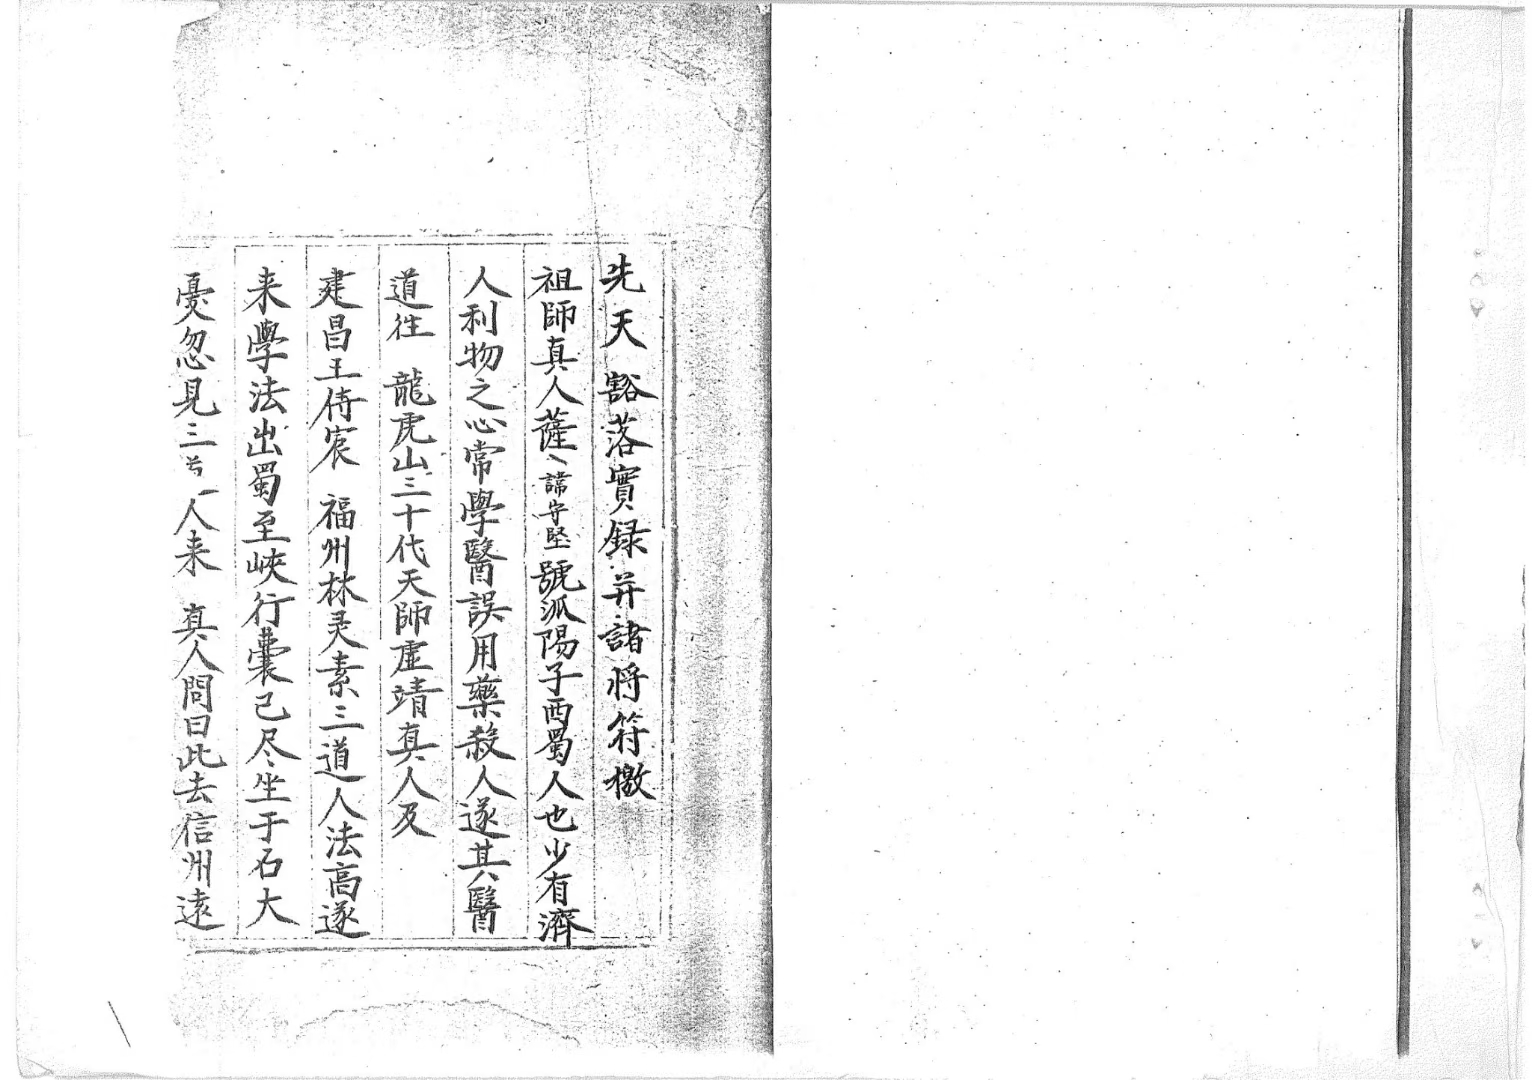 先天豁落實録并諸將符檄
祖師真人薩諱守堅號派陽子西蜀人也少有濟
人利物之心常學醫誤用藥殺人遂其醫
道徃龍虎山三十代天師虛靖真人及
建昌王侍宸福州林灵素三道人法高遂
来學法出蜀至峽行囊已尽坐于石大
憂忽見三人来真人問曰此去信州遠